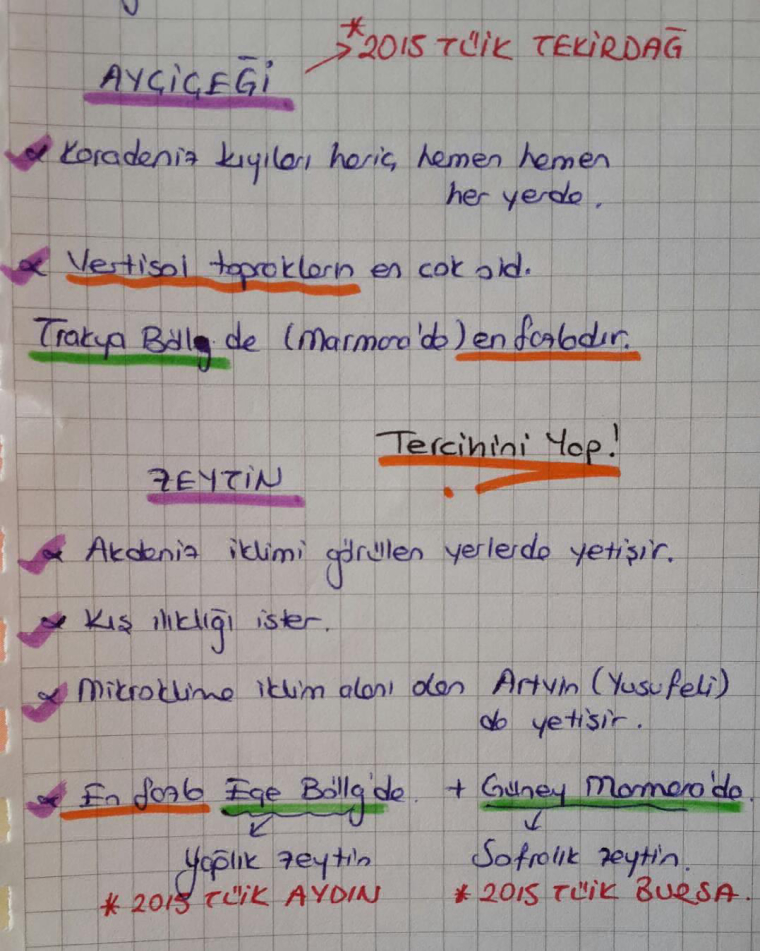 *2015 TÜİK TEKİRDAĞ
AYÇİÇEĞİ
* Karadeniz kıyıları hariç hemen hemen
her yerde.
* Vertisol toprakların en çok old.
Trakya Bölg de (Marmara'da) en fazladır.
Tercihini Yap!
ZEYTİN
* Akdeniz iklimi görülen yerlerde yetişir.
* Kış ılıklığı ister.
* Mikroklima iklim alanı olan Artvin (Yusufeli)
da yetişir.
* En fazla Ege Bölg'de. + Güney Marmara'da.
Yağlık zeytin Sofralık zeytin.
* 2015 TÜİK AYDIN * 2015 TÜİK BURSA.